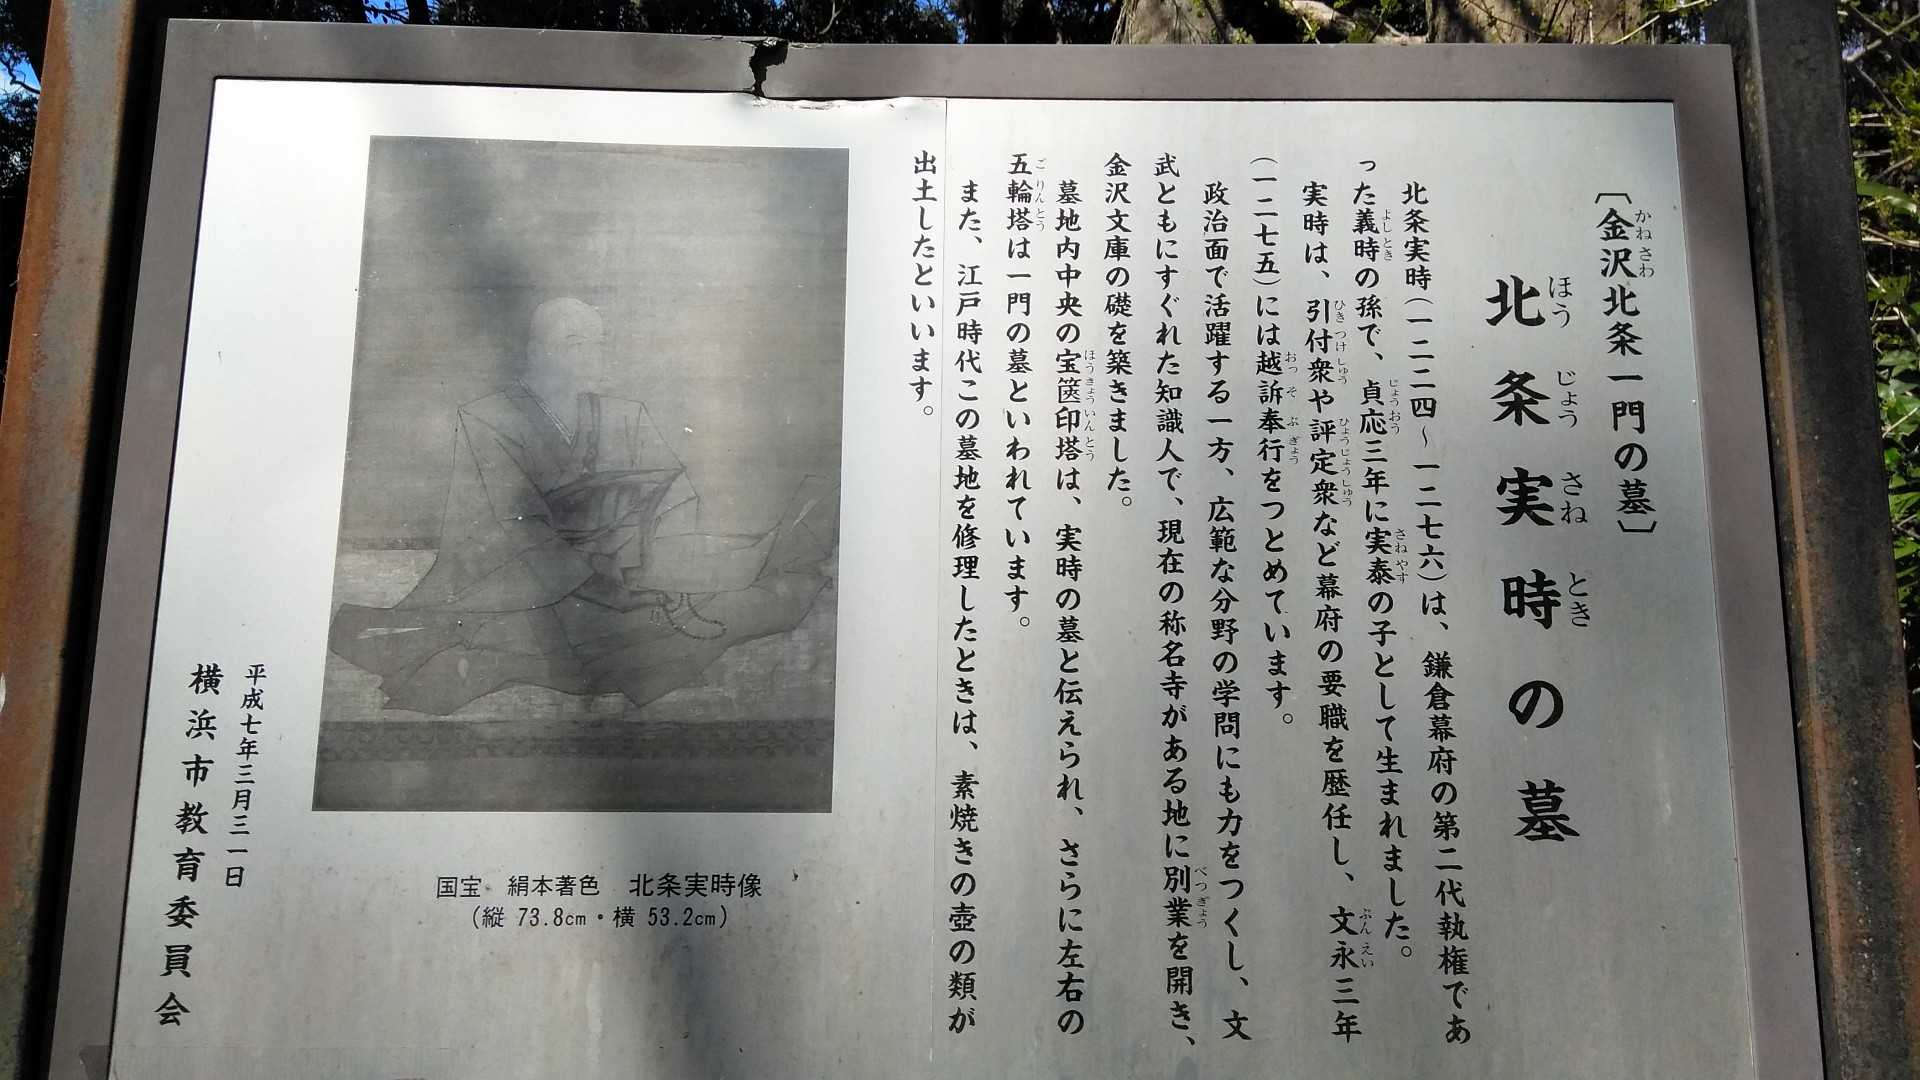 〔金沢北条一門の墓〕
かねさわ
北条実時の墓
ほうじょうさねとき
北条実時(一二二四～一二七六)は、鎌倉幕府の第二代執権であ
った義時の孫で、貞応三年に実泰の子として生まれました。
よしとき じょうおう さねやす
実時は、引付衆や評定衆など幕府の要職を歴任し、文永三年
ひきつけしゅう ひょうじょうしゅう ぶんえい
(一二七五)には越訴奉行をつとめています。
おっそぶぎょう
政治面で活躍する一方、広範な分野の学問にも力をつくし、文
武ともにすぐれた知識人で、現在の称名寺がある地に別業を開き、
べつぎょう
金沢文庫の礎を築きました。
墓地内中央の宝篋印塔は、実時の墓と伝えられ、さらに左右の
ほうきょういんとう
五輪塔は一門の墓といわれています。
ごりんとう
また、江戸時代この墓地を修理したときは、素焼きの壺の類が
出土したといいます。
国宝 絹本著色 北条実時像
(縦 73.8cm・横 53.2cm)
平成七年三月三一日
横浜市教育委員会